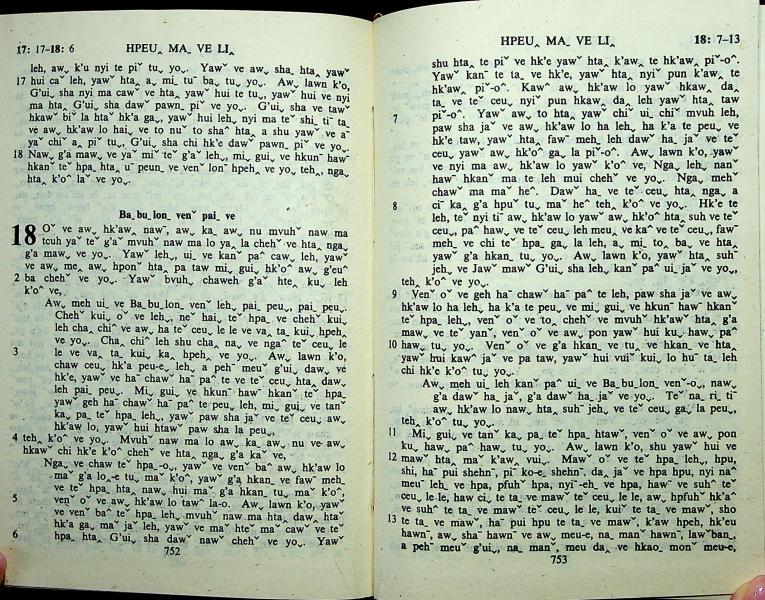 17: 17-18: 6 HPEUꞈ MAˍ VE LIꞈ
leh, awˬ k'u nyi te piˇ tuˬ yoˬ. Yawˇ ve awˬ shaˍ htaꞈ yawˇ
17 hui caˇ leh, yawˇ htaꞈ aˍ miˍ tuˉ baˍ tuˬ yoˬ. Awˬ lawn k'o,
G'uiˬ sha nyi ma cawˇ ve htaꞈ yawˇ hui te tuˬ, yawˇ hui ve nyi
ma htaꞈ G'uiˬ sha dawˇ pawnˍ piˇ ve yoˬ. G'uiˬ sha ve tawˇ
hkawˇ biˇ la htaˇ hk'a gaˬ, yawˇ hui lehˬ nyi ma teˇ shiˍ tiˉ taˍ
ve awˬ hk'aw lo haiˬ ve to nuˇ to shaˆ htaꞈ a shu yawˇ ve aˉ
yaˇ chiˇ aˍ piˇ tuˬ, G'uiˬ sha chi hk'e dawˇ pawnˍ piˇ ve yoˬ.
18 Nawˬ g'a mawˬ ve yaˇ miˇ teˇ g'aˇ lehˬ, miˍ guiˬ ve hkunˇ hawˉ
hkanˇ teˇ hpaˍ htaꞈ uˉ peunˍ ve venˇ lonˇ hpehˬ ve yoˬ tehˬ, ngaˬ
htaꞈ k'oˆ laˇ ve yoˬ.
Baˍ buˍ lonˍ venˇ paiˬ ve
18 Oˇ ve awˬ hk'awˬ nawˉ, awˬ kaˍ awˬ nu mvuhˇ naw ma
tcuh yaˇ teˇ g'aˇ mvuhˇ naw ma lo yaˬ la chehˇ ve htaꞈ ngaˬ
g'a mawˬ ve yoˬ. Yawˇ lehˬ, uiˬ ve kanˇ paˆ cawˬ leh, yawˇ
ve awˬ meˬ awˬ hponˇ htaꞈ pa taw miˍ guiˬ hk'oˆ awˬ g'euˆ
2 ba chehˇ ve yoˬ. Yawˇ bvuhˬ chaweh g'aˇ hteˬ kuˬ leh
k'oˆ ve,
Awˬ meh ui ve Baˍ buˍ lonˍ venˇ leh paiˬ peuˬ, paiˬ peuˬ.
Chehˇ kuiˬ oˇ ve lehˬ, neˇ haiˬ teˇ hpaˍ ve chehˇ kuiˬ
leh chaˬ chiˆ ve awˬ haˍ teˇ ceuˬ leˬ le ve vaˍ taˍ kuiˬ hpehˬ
ve yoˬ. Chaˬ chiˆ leh shu chaˬ naˬ ve ngaˉ teˇ ceuˬ le
3 le ve vaˬ taˍ kuiˬ kaˬ hpehˬ ve yoˬ. Awˬ lawn k'o,
chaw ceuˬ hk'a peu-eˬ lehˬ a pehˉ meuˇ g'uiˬ dawˬ ve
hk'e, yawˇ ve haˉ chawˇ haˉ paˆ te ve teˇ ceuˬ htaꞈ dawˬ
leh paiˬ peuˬ. Miˍ guiˬ ve hkunˇ hawˉ hkanˇ teˇ hpaˍ
yawˇ geh haˉ chawˇ haˉ paˆ te peuˬ leh, miˍ guiˬ ve tanˇ
kaˬ paˍ teˇ hpaˍ lehˬ, yawˇ paw sha jaˇ ve teˇ ceuˬ awˬ
hk'aw lo, yawˇ hui htaw paw sha la peuˬ,
4 tehˬ k'oˆ ve yoˬ. Mvuhˇ naw ma lo awˬ kaˬ awˬ nu ve awˬ
hkawˇ chi hk'e k'oˆ chehˇ ve htaꞈ ngaˬ g'a kaˇ ve,
Ngaˬ ve chaw teˇ hpaˍ-oˬ, yawˇ ve venˇ baˆ awˬ hk'aw lo
maˇ g'a loˬ-e tuˬ maˇ k'oˆ, yawˇ g'a hkanˬ ve fawˉ mehˍ
ve teˇ hpaˍ htaꞈ nawˬ hui maˇ g'a hkanˬ tuˬ maˇ k'oˆ,
5 venˇ oˇ ve awˬ hk'aw lo tawˆ la-o. Awˬ lawn k'o, yawˇ
ve venˇ baˆ teˇ hpaˍ lehˬ mvuhˇ naw ma htaꞈ dawˬ htaˇ
hk'a gaˬ maˇ jaˇ leh, yawˇ ve maˇ hteˇ maˇ cawˇ ve teˇ
6 hpaˍ htaꞈ G'uiˬ sha dawˬ nawˇ chehˇ ve yoˬ. Yawˇ
752
HPEUꞈ MAˍ VE LIꞈ 18: 7-13
shu htaꞈ te piˇ ve hk'e yawˇ htaꞈ k'awˬ te hk'awˬ piˇ-oˆ.
Yawˇ kanˉ te taˍ ve hk'e, yawˇ htaꞈ nyiˇ pun k'awˬ te
hk'awˬ piˇ-oˆ. Kawˆ awˬ hk'aw lo yawˇ hkawˬ daˬ
taˍ ve teˇ ceuˬ nyiˇ pun hkawˬ daˬ leh yawˇ htaꞈ taw
7 piˇ-oˆ. Yawˇ awˬ to htaꞈ yawˇ chiˇ uiˬ chiˇ mvuh leh,
paw sha jaˇ ve awˬ hk'aw lo ha leh, ha k'a te peuˬ ve
hk'e taw, yawˇ htaꞈ fawˉ mehˍ leh dawˇ haˍ jaˇ ve teˇ
ceuˬ yawˇ awˬ hk'oˆ gaˬ la piˇ-oˆ. Awˬ lawn k'o, yawˇ
ve nyi ma awˬ hk'aw lo yawˇ k'oˆ ve, Ngaˬ lehˬ nanˇ
hawˉ hkanˇ ma te leh mui chehˇ ve yoˬ. Ngaˬ mehˇ
chawˇ ma maˇ heˆ. Dawˇ haˍ ve teˇ ceuˬ htaꞈ ngaˬ a
8 ciˉ kaˬ g'a hpuˇ tuˬ maˇ heˆ tehˬ k'oˆ ve yoˬ. Hk'e te
lehˬ, teˇ nyi tiˉ awˬ hk'aw lo yawˇ awˬ hk'oˆ htaꞈ suh ve teˇ
ceuˬ, paˆ hawˬ ve teˇ ceuˬ leh meuˬ ve kaˆ ve teˇ ceuˬ, fawˉ
mehˍ ve chi teˇ hpaˍ gaˬ la leh, aˍ miˍ toˆ baˬ ve htaꞈ
yawˇ g'a hkanˬ tuˬ yoˬ. Awˬ lawn k'o, yawˇ htaꞈ suhˉ
jehˬ ve Jaw mawˇ G'uiˬ sha lehˬ kanˇ paˆ uiˬ jaˇ ve yoˬ,
tehˬ k'oˆ ve yoˬ.
9 Venˇ oˇ ve geh haˉ chawˇ haˉ paˆ te leh, paw sha jaˇ ve awˬ
hk'aw lo ha leh, ha k'a te peuˬ ve miˍ guiˬ ve hkunˇ hawˉ hkanˇ
teˇ hpaˍ lehˬ, venˇ oˇ ve toˬ chehˇ ve mvuhˇ hk'awˇ htaꞈ g'a
mawˬ ve teˇ yanˇ, venˇ oˇ ve awˬ pon yawˇ hui kuˬ hawˬ paˆ
10 hawˬ tuˬ yoˬ. Venˇ oˇ ve g'a hkanˬ ve tuˬ ve hkanˬ ve htaꞈ
yawˇ hui kawˇ jaˇ ve pa taw, yawˇ hui vuiˇ kuiˬ lo huˉ taˬ leh
chi hk'e k'oˆ tuˬ yoˬ.
Awˬ meh ui leh kanˇ paˆ uiˬ ve Baˍ buˍ lonˍ venˇ-oˬ, nawˬ
g'a dawˇ haˍ jaˇ, g'a dawˇ haˍ jaˇ ve yoˬ. Teˇ naˬ riˬ tiˉ
awˬ hk'aw lo nawˬ htaꞈ suhˉ jehˬ ve teˇ ceuˬ gaˬ la peuˬ,
tehˬ k'oˆ tuˬ yoˬ.
11 Miˍ guiˬ ve tanˇ kaˬ paˍ teˇ hpaˍ htawˇ, venˇ oˇ ve awˬ pon
kuˬ hawˬ paˆ hawˬ tuˬ yoˬ. Awˬ lawn k'o, shu yawˇ hui ve
12 mawˇ htaꞈ maˇ k'awˬ vuiˬ. Mawˇ oˇ ve teˇ hpaˍ lehˬ, hpu,
shi, haˉ pui shehnˇ, piˇ ko-eˬ shehnˇ, daˬ jaˇ ve hpa hpu, nyi naˆ
meuˇ leh ve hpa, pfuhˇ hpa, nyiˇ-eh ve hpa, hawˇ ve suhˆ teˇ
ceuˬ leˬ le, haw ciˬ teˍ taˍ ve mawˇ teˇ ceuˬ leˬ le, awˬ hpfuhˇ hk'aˆ
ve suhˆ teˍ taˍ ve mawˇ teˇ ceuˬ leˬ le, kuiˇ teˍ taˍ ve mawˇ, sho
13 teˍ taˍ ve mawˇ, haˉ pui hpu teˍ taˍ ve mawˇ, k'aw hpeh, hk'eu
hawnˉ, awˬ shaˉ hawnˇ ve awˬ meu-e, naˬ manˇ hawnˉ, lawˇbanˬ,
a pehˉ meuˇ g'uiˬ, naˬ manˇ, meu daˬ ve hkaoˬ monˇ meu-e,
753